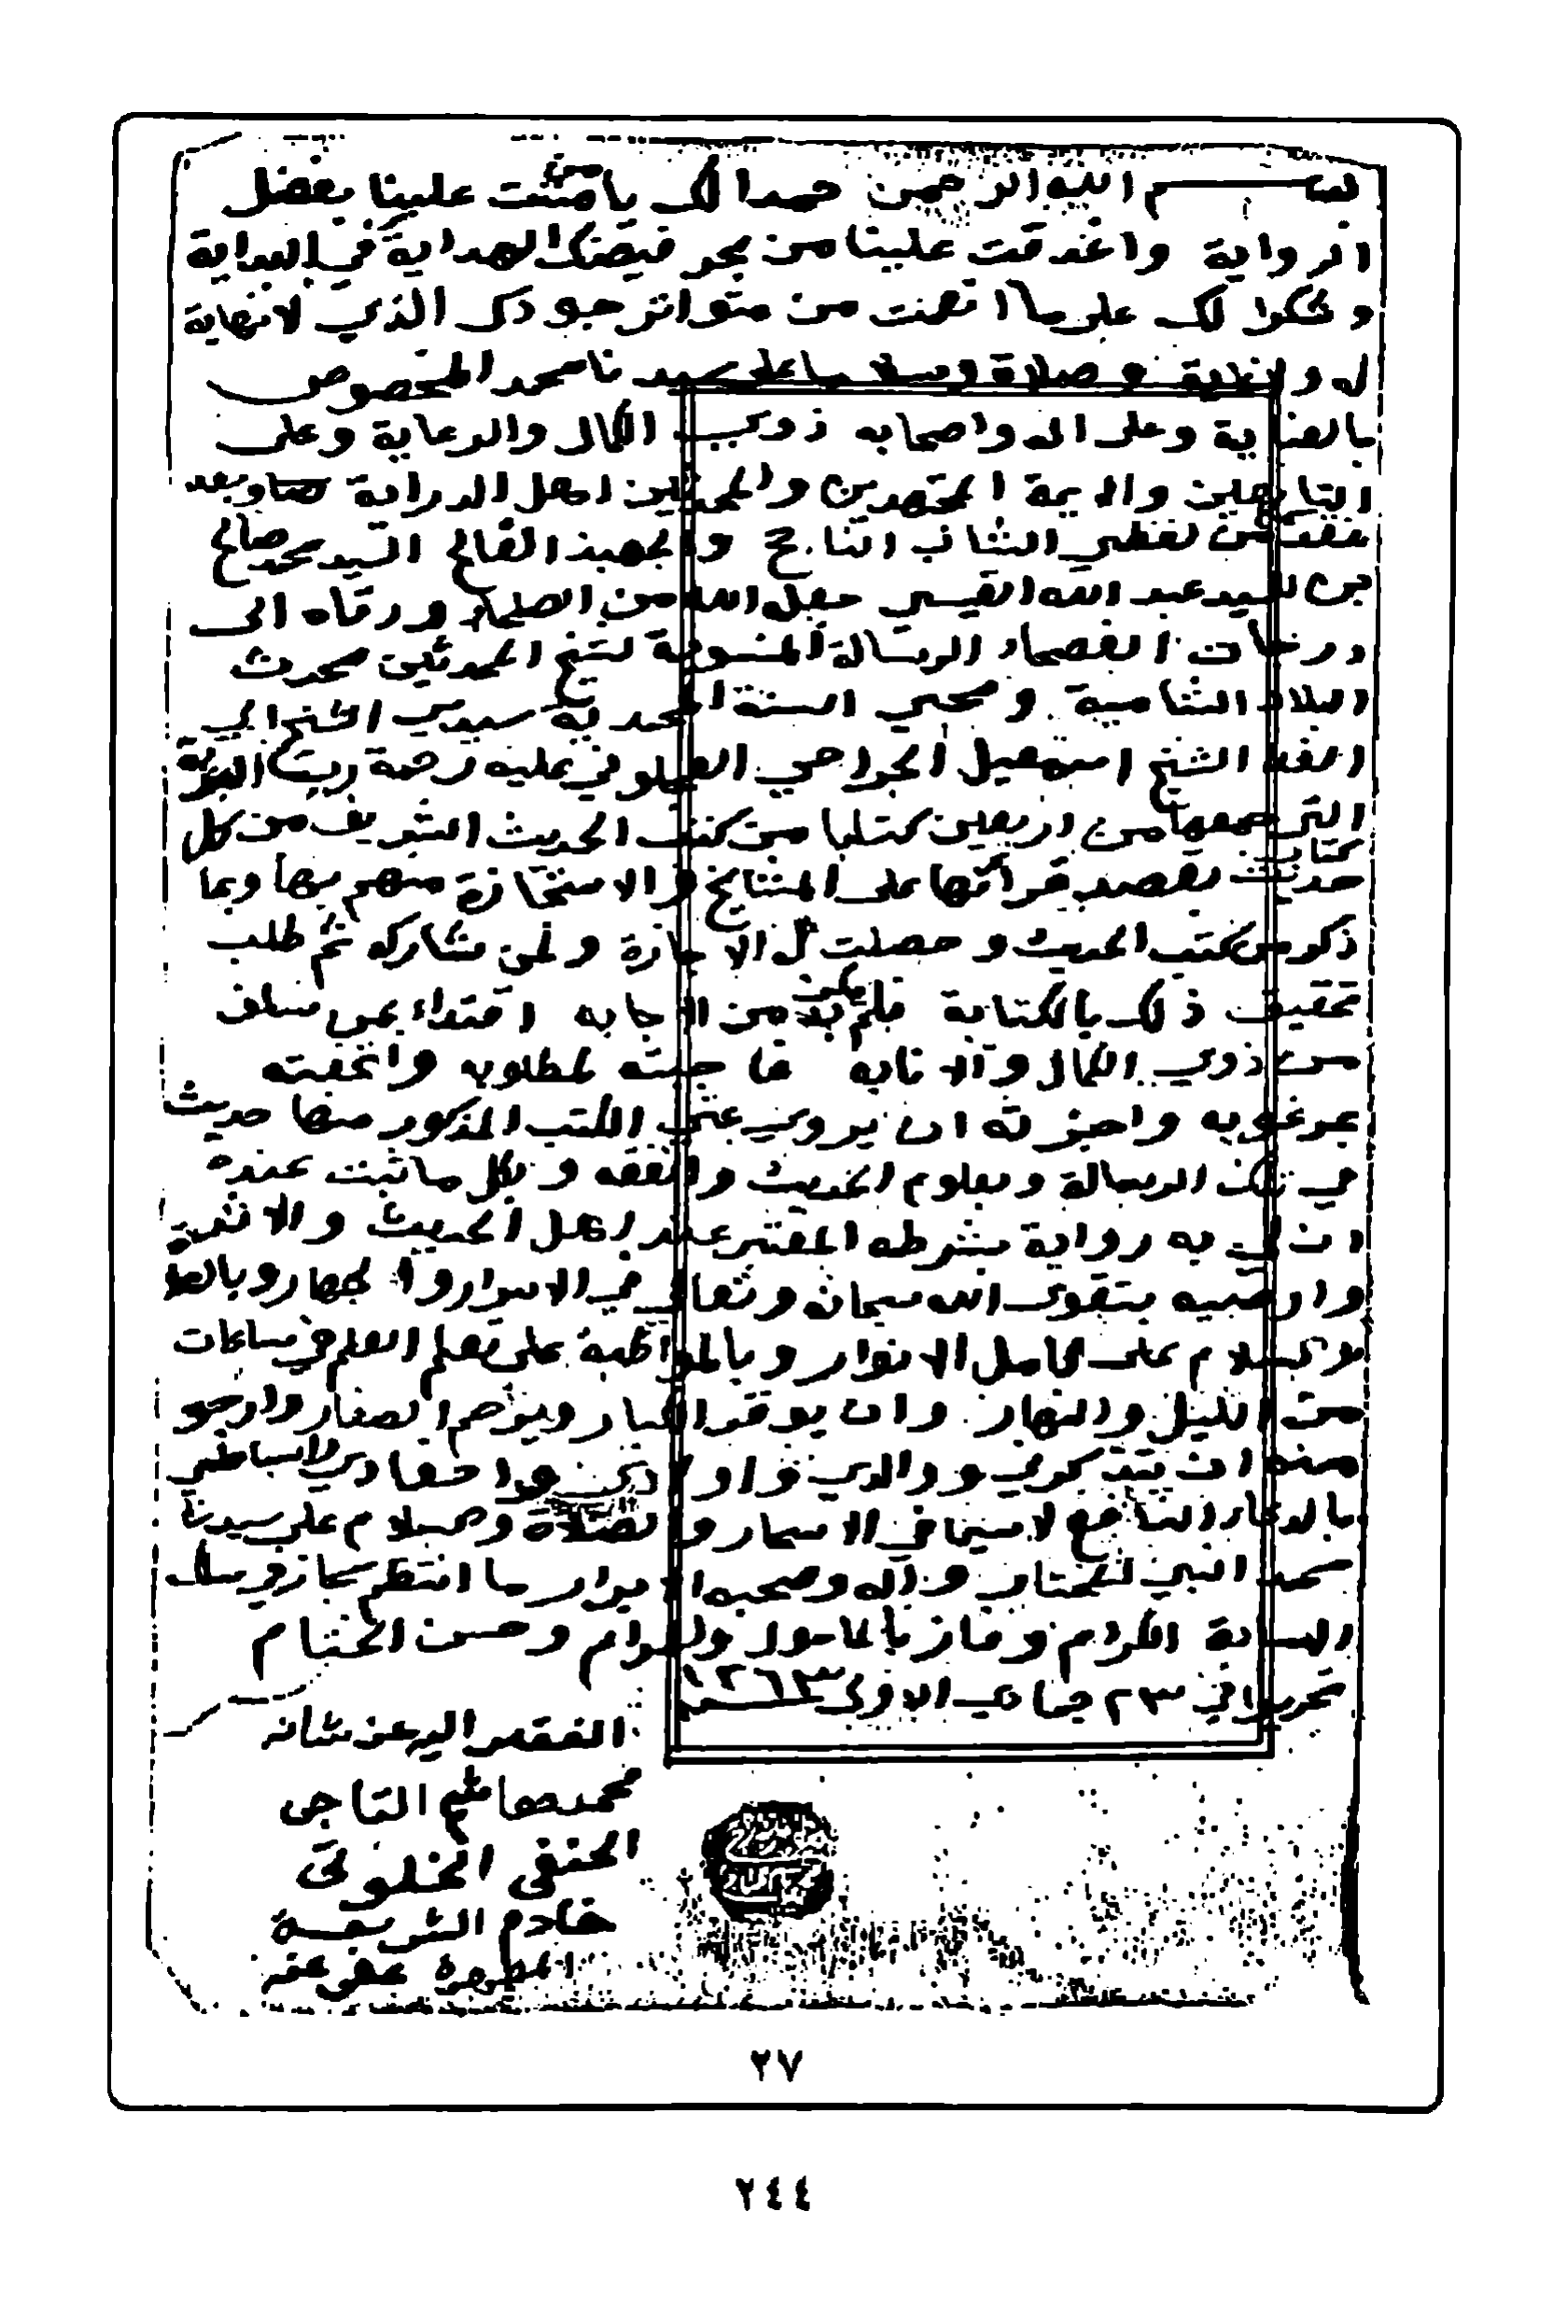 بسم الله الرحمن حمدا لك يا من مننت علينا بفضل
الرواية واغدقت علينا من بحر فيضك الهداية في البداية
وشكرا لك على ما انعمت من متواتر جودك الذي لا نهاية
له ولا غاية وصلاة وسلاما على سيدنا محمد المخصوص
بالعناية وعلى اله واصحابه ذوي الكمال والرعاية وعلى
التابعين والايمة المجتهدين والمحدثين اهل الدراية وبعد
فقد لفظي الشاب الناجح والجهبذ الفالح السيد محمد صالح
بن السيد عبد الله القيسي جعله الله من الصلحاء ورقاه الى
درجات الفصحاء الرسالة المنسوبة لشيخ المحدثين محدث
البلاد الشامية ومحيي السنة المحمدية سيدي الشيخ ابي
الفدا الشيخ اسمعيل الجراحي العجلوني عليه رحمة رب البرية
التي جمعها من اربعين كتابا من كتب الحديث الشريف من كل
كتاب
حديث بقصد قرائتها على المشايخ والاستجازة منهم بها وبما
ذكر من كتب الحديث وحصلت له الاجازة ولمن شاركه ثم طلب
تحقيق ذلك بالكتابة فلم يكن بد من الاجابه اقتداء بمن سلف
من ذوي الكمال والانابه فاجبته لمطلوبه واتحفته
بمرغوبه واجزته ان يروي عني الكتب المذكور منها حديث
في تلك الرسالة وبعلوم الحديث والفقه وبكل ما ثبت عنده
ان لي به رواية بشرطه المعتبر عند اهل الحديث والاثر
واوصيه بتقوى الله سبحانه وتعالى في الاسرار والجهار وبالصلاة
والسلام على كامل الانوار وبالمواظبة على تعلم العلم في ساعات
من الليل والنهار وان يوقر الكبار ويرحم الصغار وارجو
منه ان يتذكرني ووالدي واولادي واحفادي واسباطي
بالدعاء النافع لا سيما في الاسحار والصلاة والسلام على سيدنا
محمد النبي المختار واله وصحبه الابرار ما انتظم مجاز في سلك
السادة الكرام وفاز بالمامول والمرام وحسن الختام
تحريرا في ٢٣ جمادي الاولى سنة ١٢٦٣
الفقير اليه عز شانه
محمد هاشم التاجى
الحنفى الخلوتى
خادم الشريعة
المطهرة عفي عنه
٢٧
٢٤٤